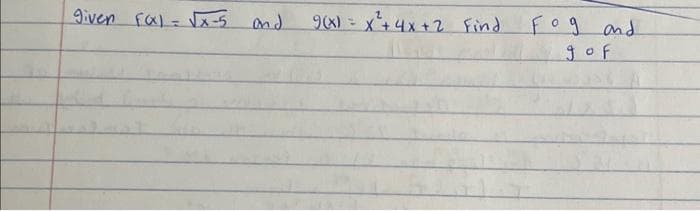 given F(x) = √x-5 and g(x) = x²+4x+2 Find F∘g and
g∘F